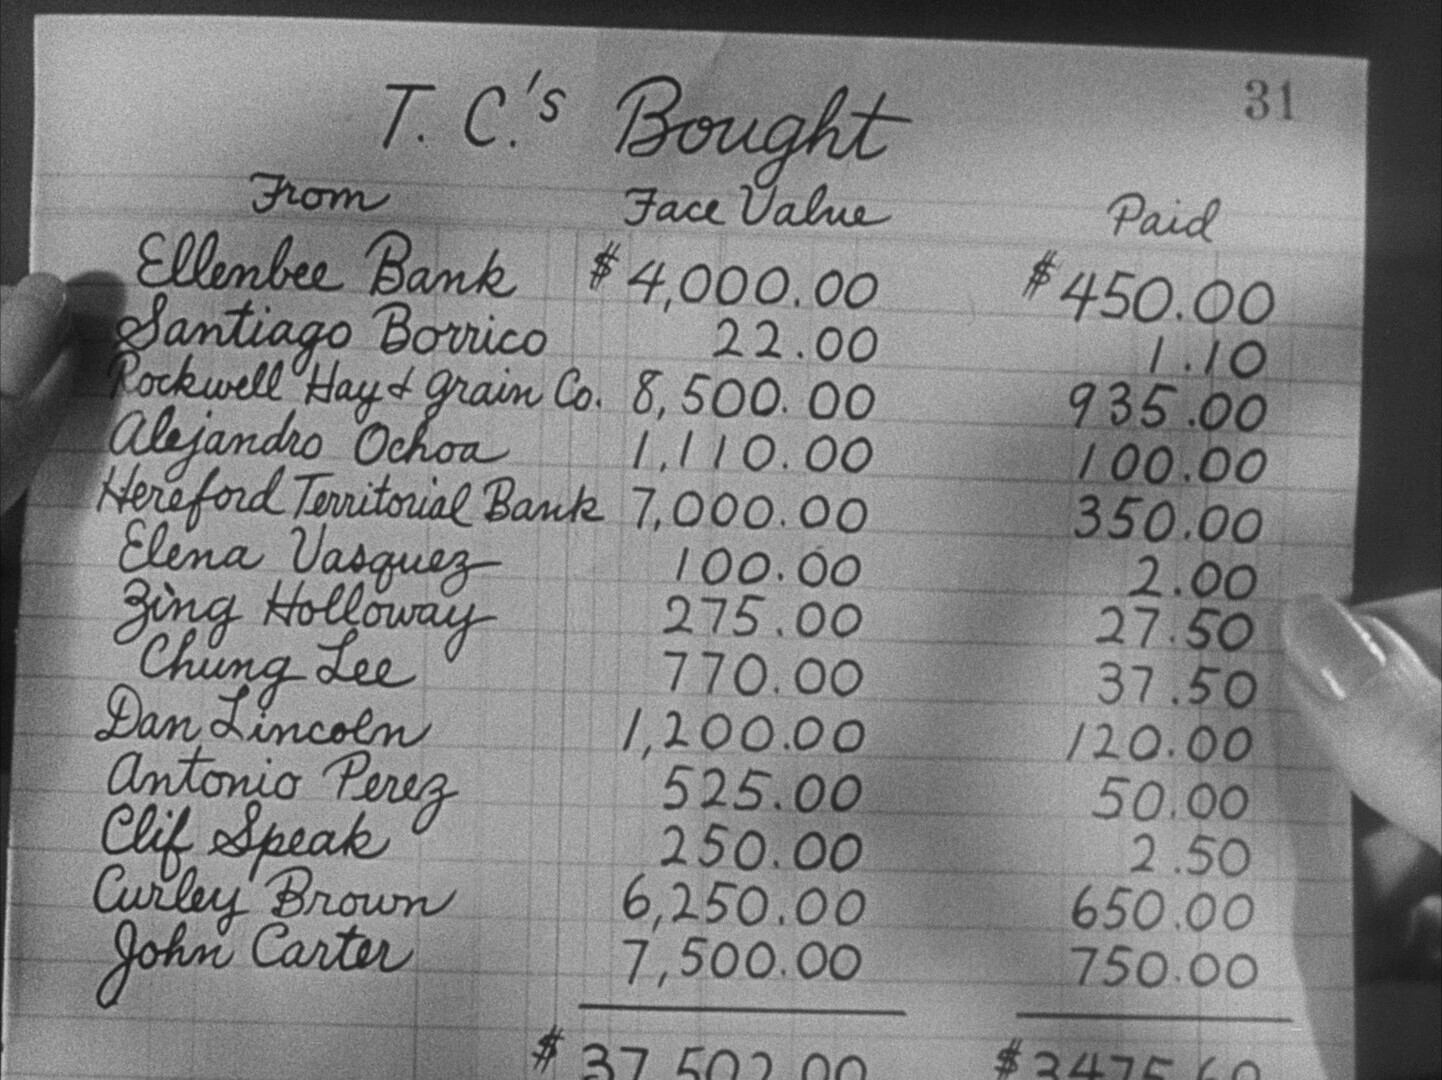 31
T. C.'s Bought
From Face Value Paid
Ellenbee Bank $4,000.00 $450.00
Santiago Borrico 22.00 1.10
Rockwell Hay & Grain Co. 8,500.00 935.00
Alejandro Ochoa 1,110.00 100.00
Hereford Territorial Bank 7,000.00 350.00
Elena Vasquez 100.00 2.00
Zing Holloway 275.00 27.50
Chung Lee 770.00 37.50
Dan Lincoln 1,200.00 120.00
Antonio Perez 525.00 50.00
Clif Speak 250.00 2.50
Curley Brown 6,250.00 650.00
John Carter 7,500.00 750.00
$37,502.00 $3475.60